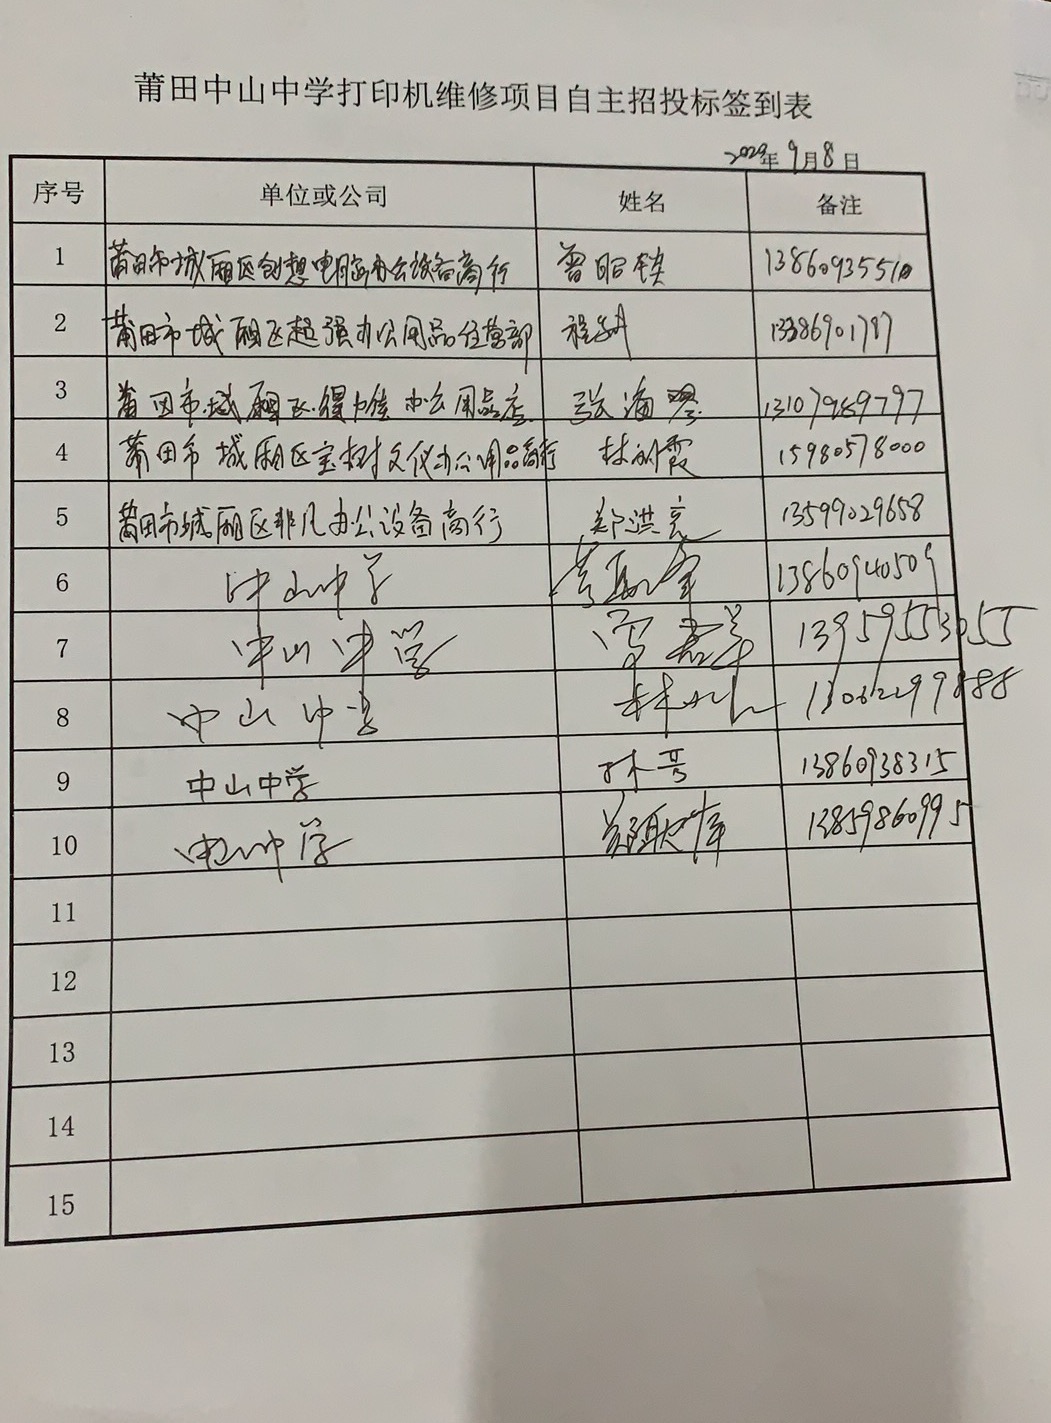 莆田中山中学打印机维修项目自主招投标签到表
2020年9月8日
序号 单位或公司 姓名 备注
1 莆田市城厢区创想电脑办公设备商行 曾昭镇 13860935510
2 莆田市城厢区超强办公用品经营部 程 13386901787
3 莆田市城厢区得力佳办公用品店 张海 13107989797
4 莆田市城厢区宝树文仪办公用品商行 林丽霞 15980578000
5 莆田市城厢区非凡办公设备商行 郑洪亮 13599029658
6 中山中学 13860940509
7 中山中学 13959553055
8 中山中学 林 13062299888
9 中山中学 林芳 13860938315
10 中山中学 13859860995
11
12
13
14
15